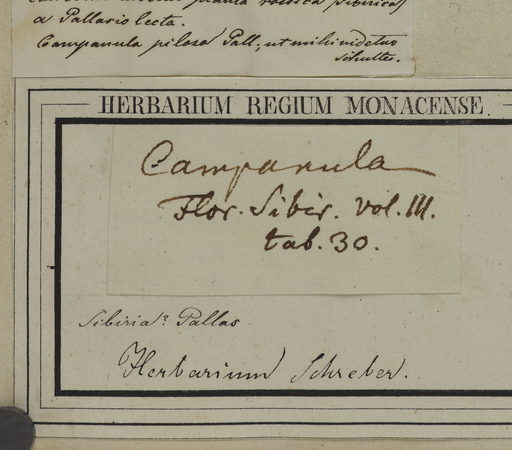 a Pallasio lecta.
Campanula pilosa Pall., ut mihi videtur
Schultes.
HERBARIUM REGIUM MONACENSE.
Campanula
Flor. Sibir. vol. III.
tab. 30.
Sibiria? Pallas.
Herbarium Schreber.